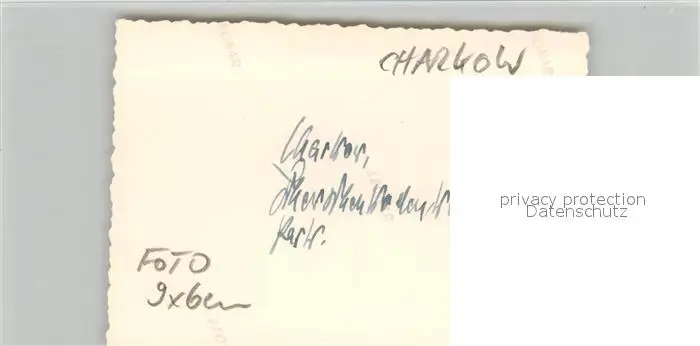 CHARKOW
Charkow,
privacy protection
Datenschutz
Park.
FOTO
9x6cm